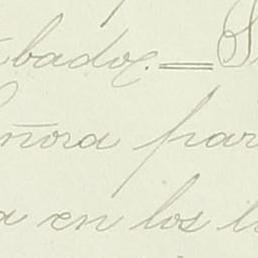 bado
eñora par
a en los l